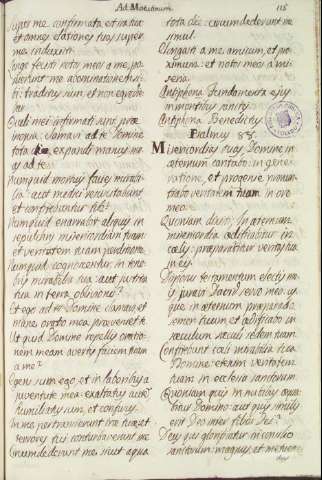 Ad Matutinum
115
super me confirmatus est furor tuus
et omnes elationes tuas super
me induxisti
Longe fecisti notos meos a me, po
suerunt me abominationem si
bi: traditus sum, et non egredie
bar
Oculi mei
inopia: clamavi ad te Domine
tota die expandi manus me
as ad te
Numquid mortuis facies mirabi
lia? aut medici resuscitabunt,
et confitebuntur tibi?
Numquid enarrabit aliquis in
sepulchro misericordiam tuam
et veritatem tuam perditione?
Numquid cognoscentur in tene
bris mirabilia tua: aut justitia
tua in terra oblivionis?
Et ego ad te Domine clamavi, et
mane oratio mea praeveniet te
Ut quid Domine repellis oratio
nem meam avertis faciem tuam
a me?
Egens sum ego, et in laboribus a
juventute mea: exaltatus autem
humiliatus sum, et conturbatus
In me transierunt irae tuae, et
terrores tui conturbaverunt me
Circumdederunt me sicut aqua
tota die: circumdederunt me
simul.
Elongasti a me amicum, et pro
ximum: et notos meos a mi
seria.
Antiphona Fundamenta ejus
in montibus sanctis
Antiphona Benedictus
Psalmus 88.
Misericordias tuas Domine in
aeternum cantabo: in gene
ratione, et progenie annun
tiabo veritatem tuam in ore
meo
Quoniam dixisti: In aeternum
misericordia aedificabitur in
coelis: praeparabitur veritas tua
in eis
Disposui testamentum electis me
is juravi David servo meo: us
que in aeternum praeparabo
semen tuum et aedificabo in
saeculum saeculi sedem tuam
Confitebuntur coeli mirabilia tua
Domine: etenim veritatem
tuam in ecclesia sanctorum
Quoniam quis in nubibus aequa
bitur Domino: aut quis similis
erit Deo inter filios Dei?
Deus qui glorificatur in consilio
sanctorum: magnus, et metuen